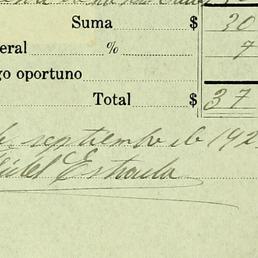 Suma $ 30
eral % 7
go oportuno
Total $ 37
de septiembre de 192
Fidel Estrada